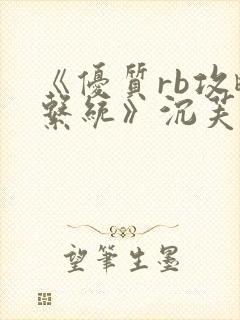 《優質rb攻略
繫統》沉芙
望筆生墨